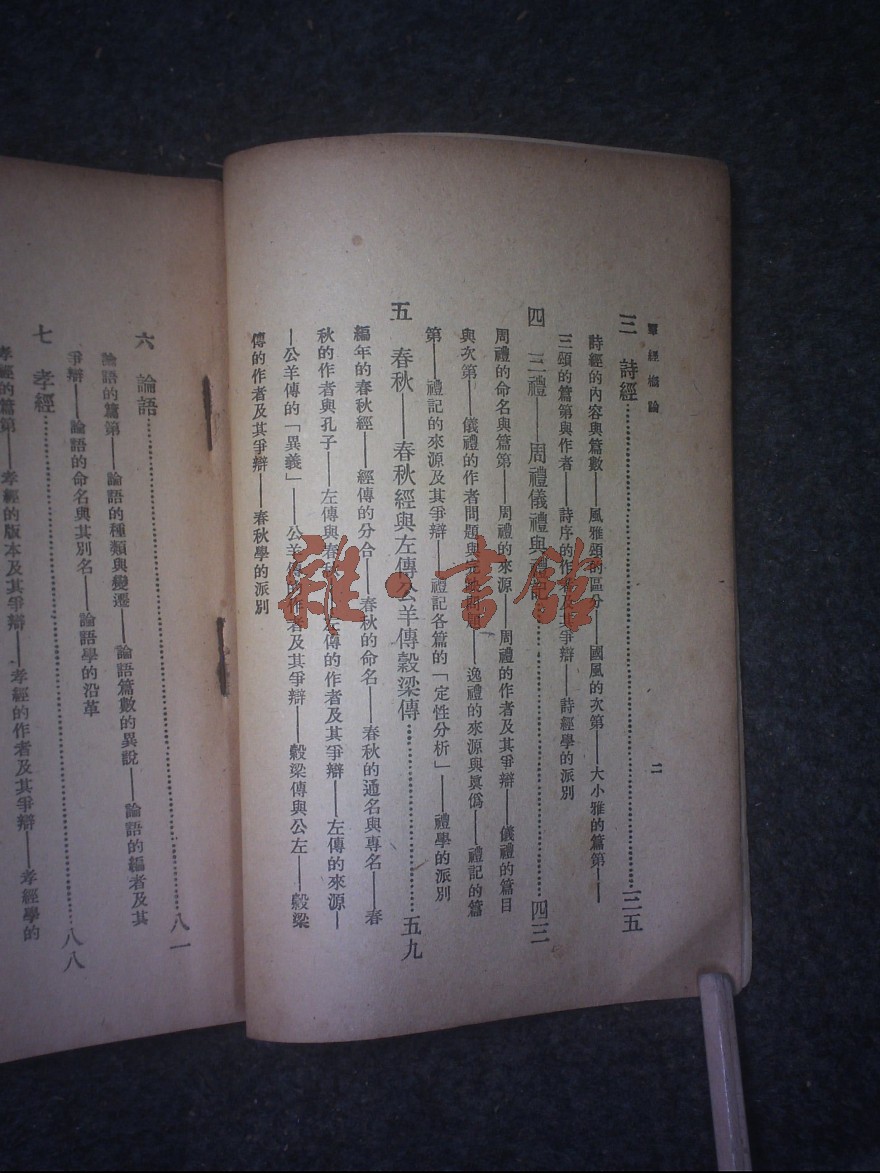 羣經概論
二
三 詩經……三五
詩經的內容與篇數——風雅頌的區分——國風的次第——大小雅的篇第——
三頌的篇第與作者——詩序的作者及其爭辯——詩經學的派別
四 三禮——周禮儀禮與禮記……四三
周禮的命名與篇第——周禮的來源——周禮的作者及其爭辯——儀禮的篇目
與次第——儀禮的作者問題與完缺問題——逸禮的來源與眞僞——禮記的篇
第——禮記的來源及其爭辯——禮記各篇的「定性分析」——禮學的派別
五 春秋——春秋經與左傳公羊傳穀梁傳……五九
編年的春秋經——經傳的分合——春秋的命名——春秋的通名與專名——春
秋的作者與孔子——左傳與春秋——左傳的作者及其爭辯——左傳的來源—
—公羊傳的「異義」——公羊傳的作者及其爭辯——穀梁傳與公左——穀梁
傳的作者及其爭辯——春秋學的派別
六 論語……八一
論語的篇第——論語的種類與變遷——論語篇數的異說——論語的編者及其
爭辯——論語的命名與其別名——論語學的沿革
七 孝經……八八
孝經的篇第——孝經的版本及其爭辯——孝經的作者及其爭辯——孝經學的
雜·書館